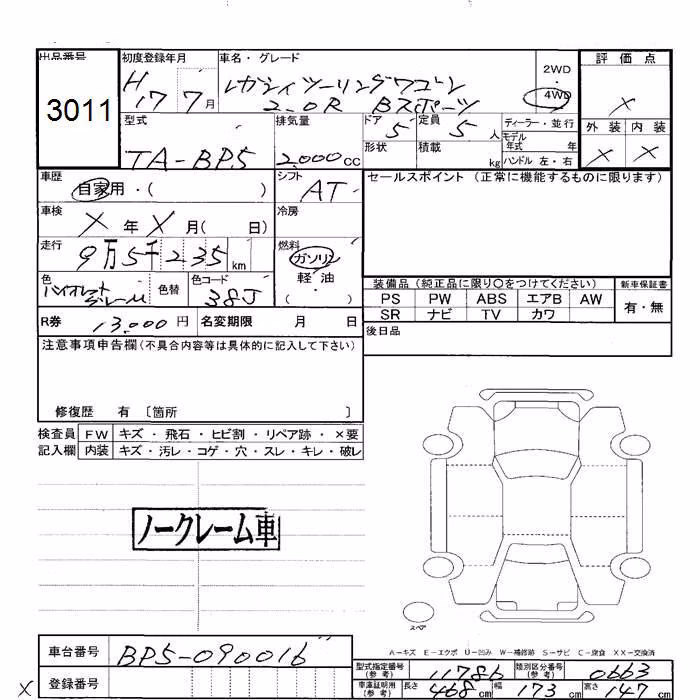 出品番号 初度登録年月 車名・グレード 評価点
3011 H17 7月 レガシィツーリングワゴン 2WD・4WD ×
2.0R Bスポーツ
型式 排気量 ドア 5 定員 5人 ディーラー・並行 外装 内装
TA-BP5 2,000cc 形状 積載 kg モデル年式 年 × ×
ハンドル 左・右
車歴 自家用・( ) シフト AT セールスポイント(正常に機能するものに限ります)
車検 × 年 × 月( 日) 冷房
走行 9万5千235km 燃料 ガソリン
軽油
・( )
色 バイオレット 色替 色コード 38J 装備品(純正品に限り○をつけてください) 新車保証書
PS PW ABS エアB AW 有・無
SR ナビ TV カワ
R券 13,000円 名変期限 月 日 後日品
注意事項申告欄(不具合内容等は具体的に記入して下さい)
修復歴 有 〔箇所 〕
検査員 FW キズ・飛石・ヒビ割・リペア跡・×要
記入欄 内装 キズ・汚レ・コゲ・穴・スレ・キレ・破レ
ノークレーム車
スペア
A-キズ E-エクボ U-凹み W-補修跡 S-サビ C-腐食 XX-交換済
車台番号 BP5-090016
型式指定番号(参考) 11786 類別区分番号(参考) 0663
× 登録番号
車庫証明用(参考) 長さ 468cm 幅 173cm 高さ 147cm